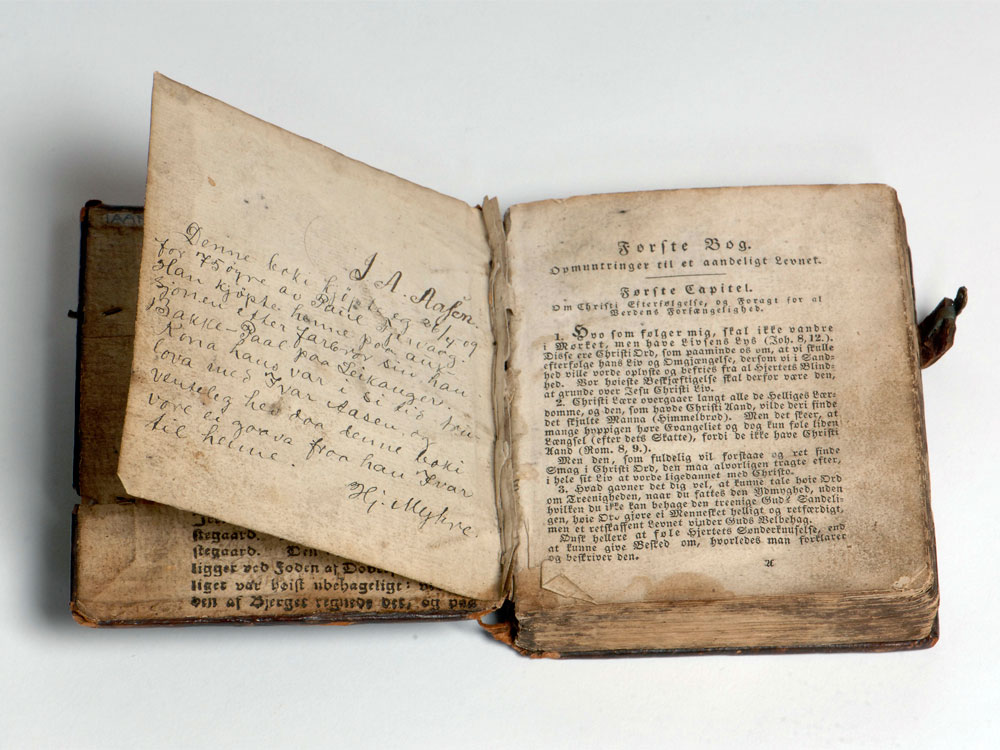 J A. Aasen.
Denne boki kjöpte eg 21/4 09
for 75 øyre av Paul
Han kjöpte henne paa auk-
sjonen etter farbror sin han
Bakke-Paal paa Leikanger.
Kona hans var i si tid tru-
lova med Ivar Aasen og
venteleg hev daa denne boki
vore ei gaava fraa han Ivar
til henne.
Hj. Myhre
stegaard.
stegaard. Den
ligger ved Foden af Dovre
liget var høist ubehageligt;
den af Bjerget regnede det, og paa
Første Bog.
Opmuntringer til et aandeligt Levnet.
Første Capitel.
Om Christi Efterfølgelse, og Foragt for al
Verdens Forfængelighed.
1. Hvo som følger mig, skal ikke vandre
i Mørket, men have Livsens Lys (Joh. 8, 12.).
Disse ere Christi Ord, som paaminde os om, at vi skulle
efterfølge hans Liv og Omgjængelse, dersom vi i Sand-
hed ville vorde oplyste og befries fra al Hjertets Blind-
hed. Vor høieste Beskjæftigelse skal derfor være den,
at grunde over Jesu Christi Liv.
2. Christi Lære overgaaer langt alle de Helliges Lær-
domme, og den, som havde Christi Aand, vilde deri finde
det skjulte Manna (Himmelbrød). Men det skeer, at
mange hyppigen høre Evangeliet og dog kun føle liden
Længsel (efter dets Skatte), fordi de ikke have Christi
Aand (Rom. 8, 9.).
Men den, som fuldelig vil forstaae og ret finde
Smag i Christi Ord, den maa alvorligen tragte efter,
i hele sit Liv at vorde ligedannet med Christo.
3. Hvad gavner det dig vel, at kunne tale høie Ord
om Treenigheden, naar du fattes den Ydmyghed, uden
hvilken du ikke kan behage den treenige Gud? Sandeli-
gen, høie Ord gjøre ei Mennesket helligt og retfærdigt,
men et retskaffent Levnet vinder Guds Velbehag.
Ønsk hellere at føle Hjertets Sønderknuselse, end
at kunne give Besked om, hvorledes man forklarer
og beskriver den.
A